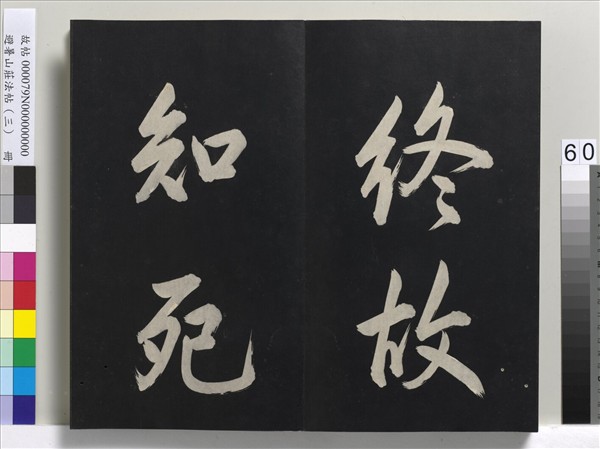 終故
知死
故帖 000079N000000000
避暑山莊法帖（三） 冊
60